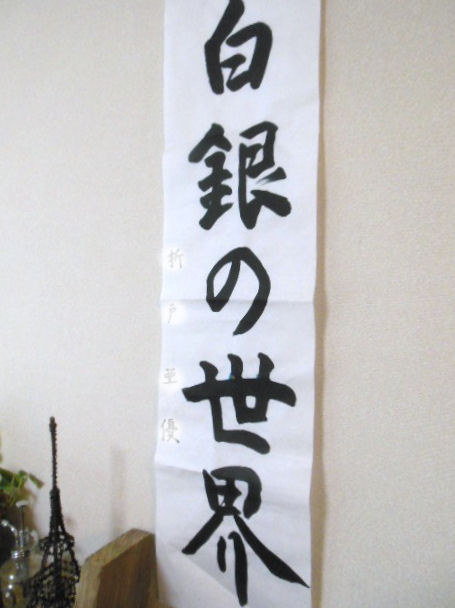 白銀の世界
折戸亜優